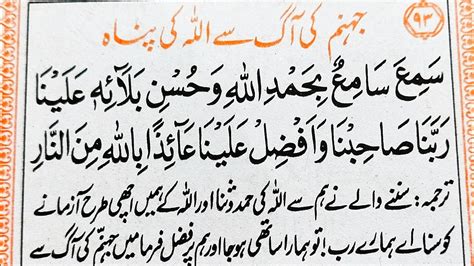 ۹۳
جہنم کی آگ سے اللہ کی پناہ
سَمِعَ سَامِعٌ بِحَمْدِ اللهِ وَحُسْنِ بَلَآئِهٖ عَلَيْنَا
رَبَّنَا صَاحِبْنَا وَاَفْضِلْ عَلَيْنَا عَائِذًا بِاللهِ مِنَ النَّارِ
ترجمہ: سننے والے نے ہم سے اللہ کی حمد و ثنا اور اللہ کے ہمیں اچھی طرح آزمانے
کو سنا اے ہمارے رب! تو ہمارا ساتھی ہو جا اور ہم پر فضل فرما میں جہنم کی آگ سے